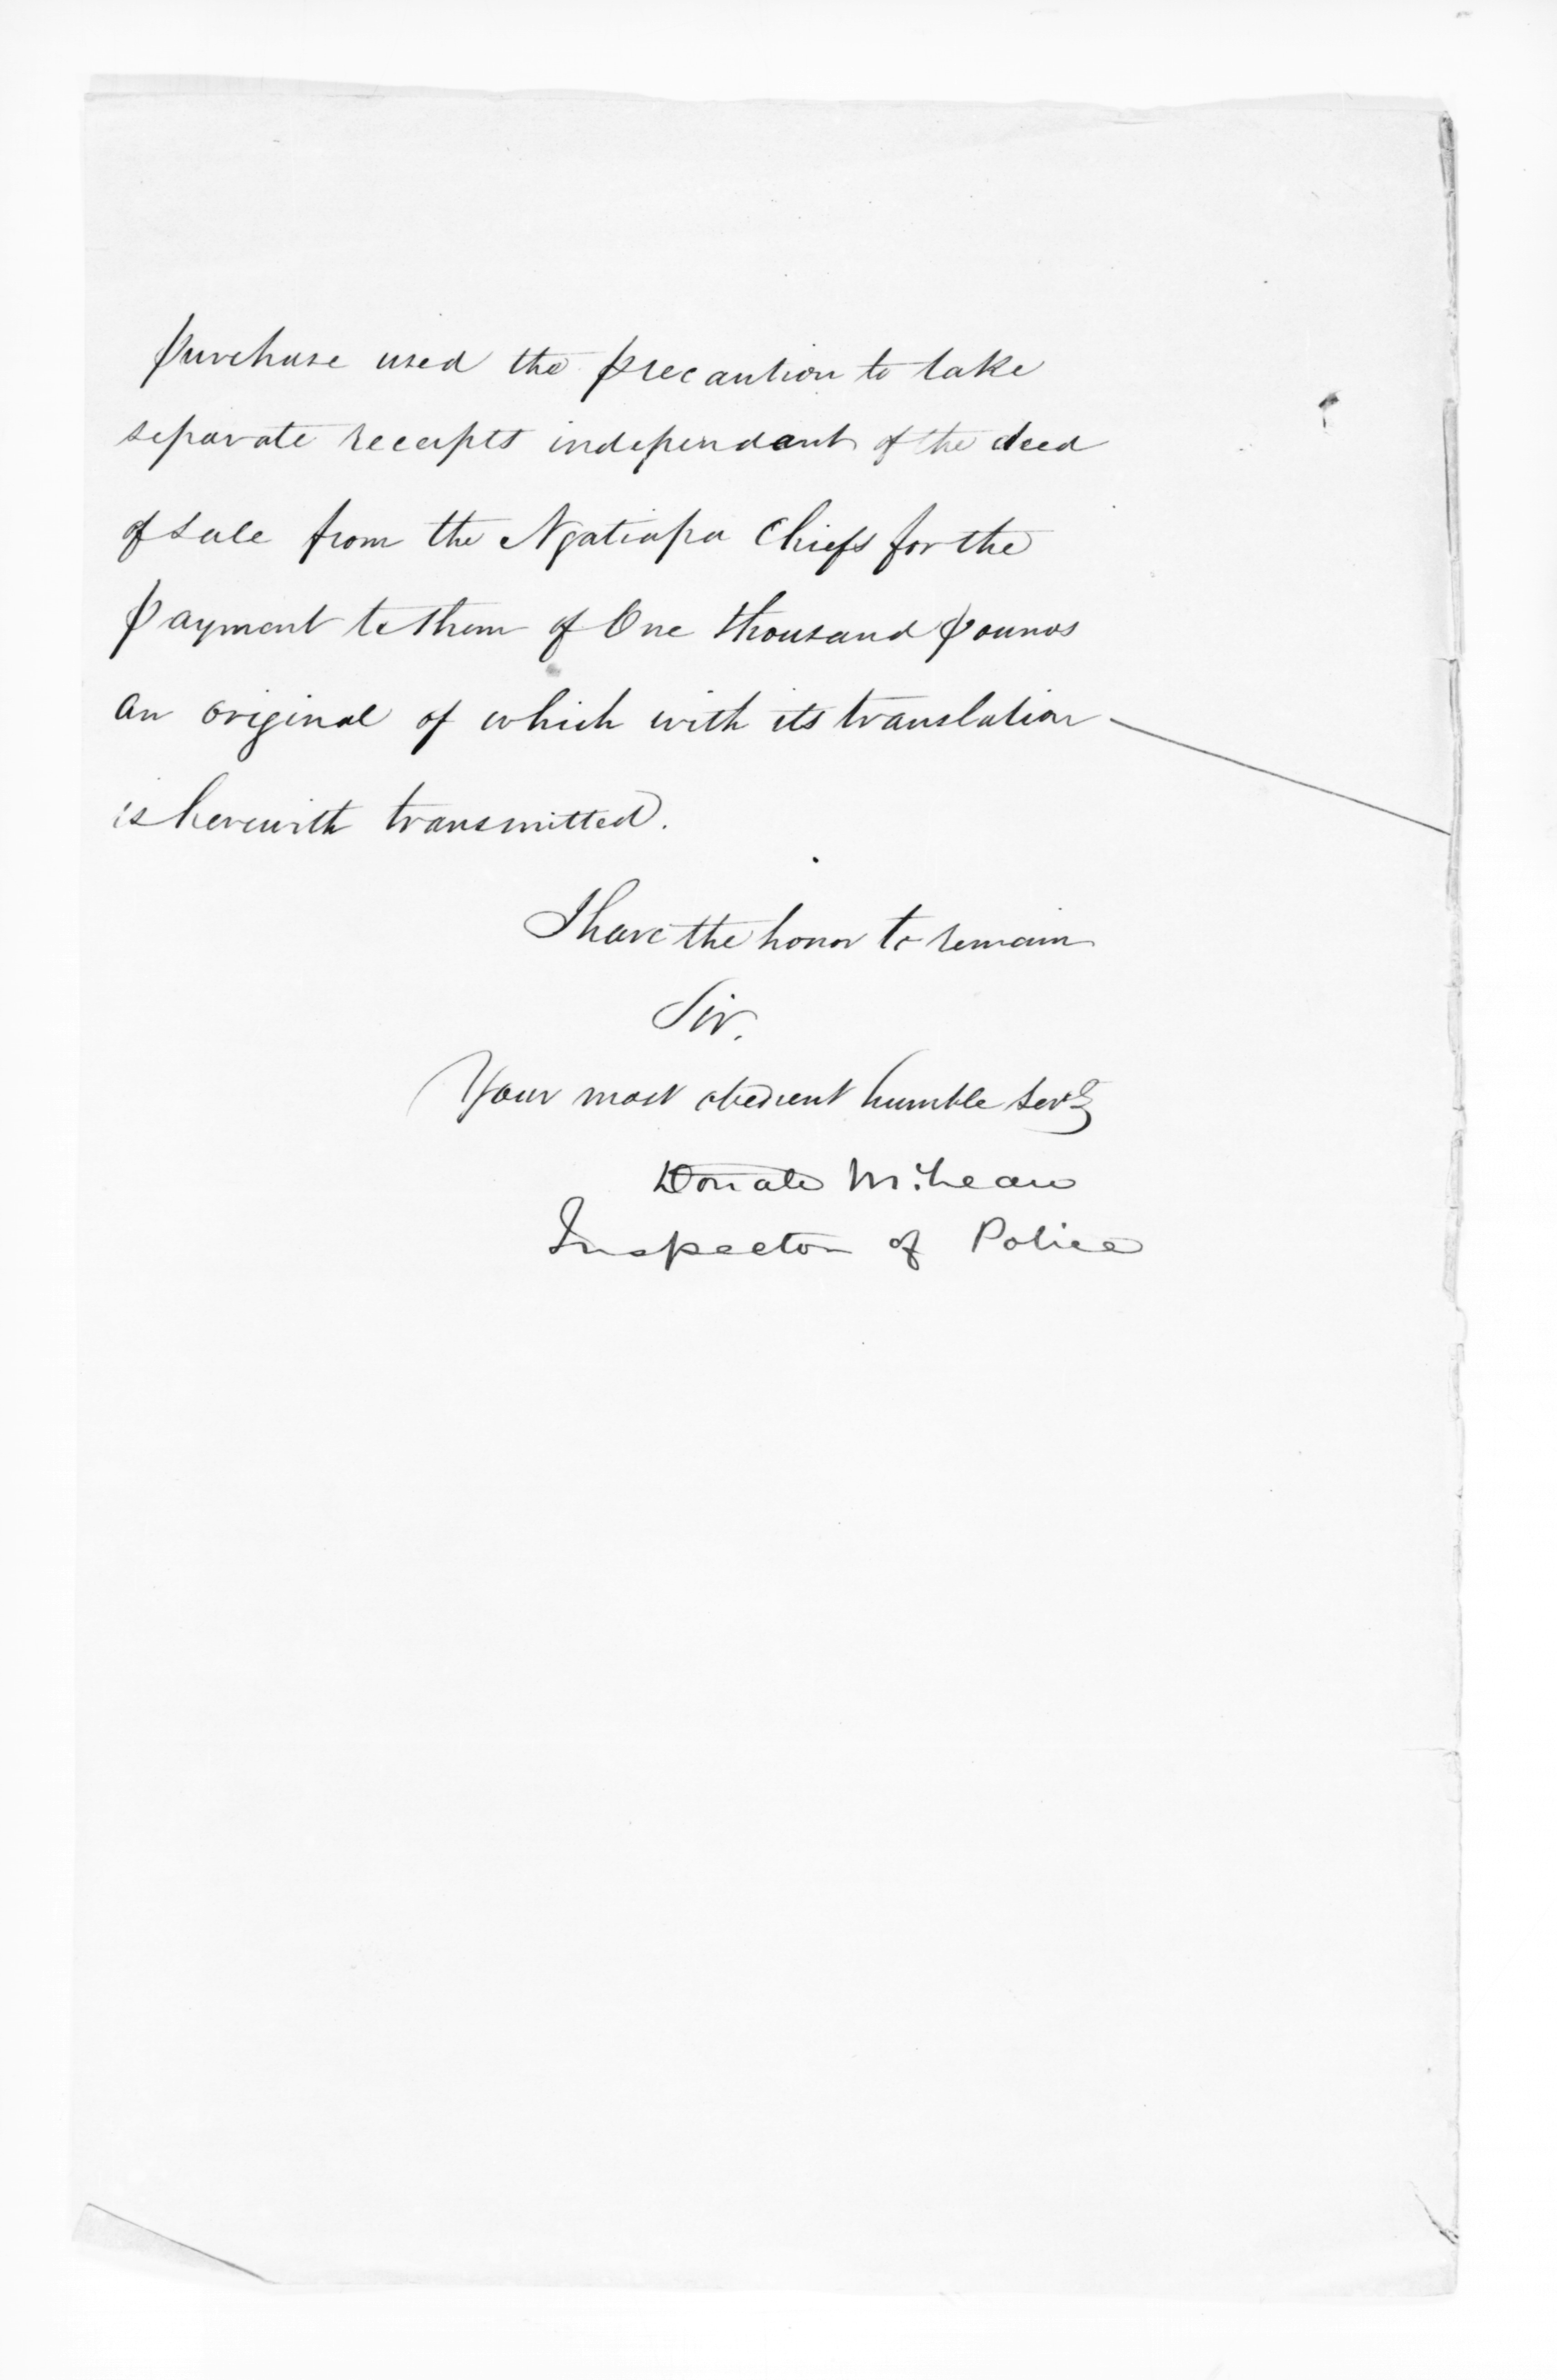 purchase used the precaution to take
separate receipts independant of the deed
of sale from the Ngatiapa Chiefs for the
payment to them of One thousand pounds
an original of which with its translation
is herewith transmitted.
I have the honor to remain
Sir.
Your most obedient humble servt
Donald McLean
Inspector of Police